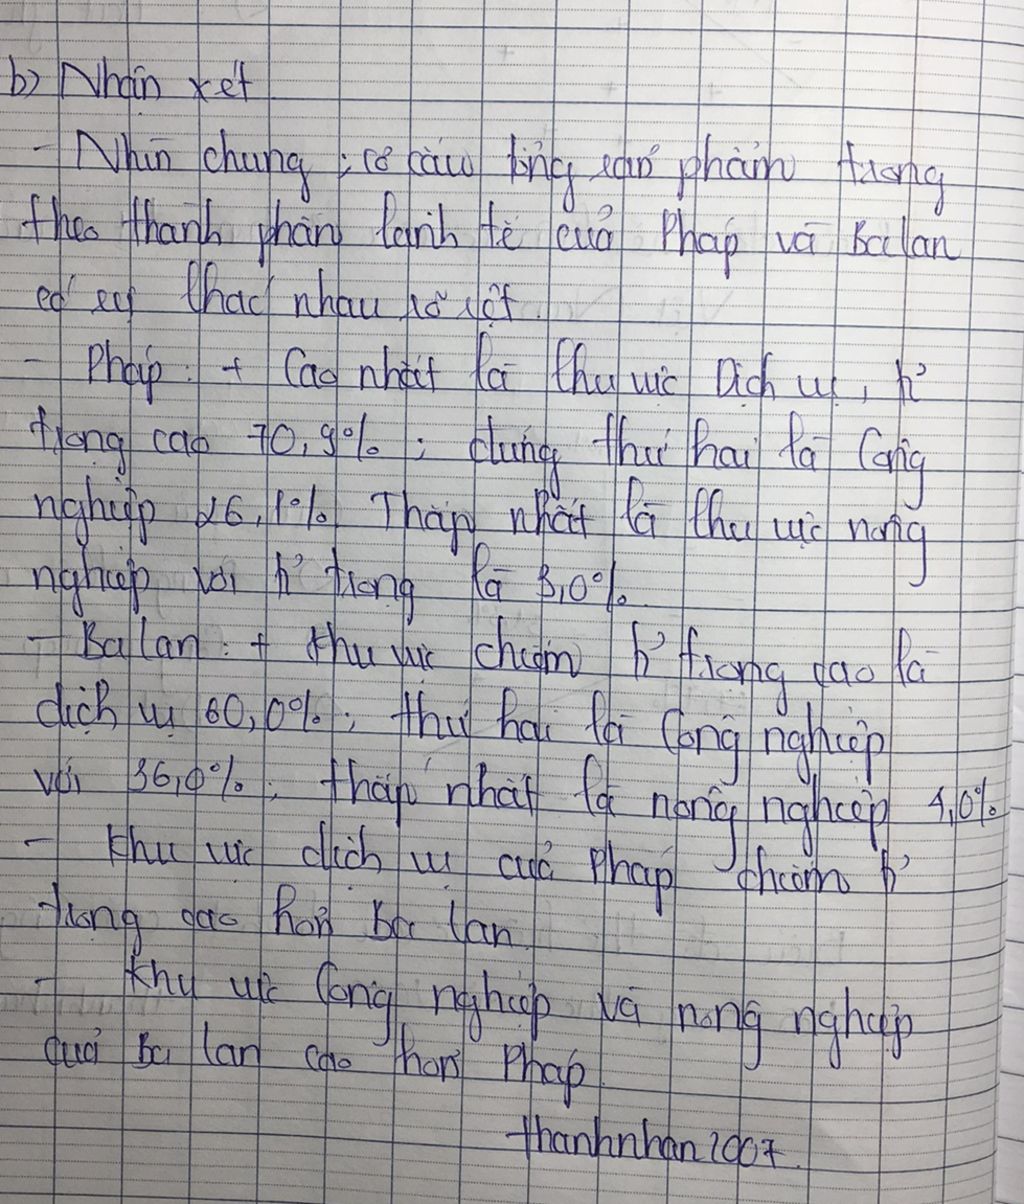 b) Nhận xét
- Nhìn chung, cơ cấu tổng sản phẩm trong
theo thành phần kinh tế của Pháp và Ba lan
có sự khác nhau rõ rệt.
- Pháp: + Cao nhất là khu vực Dịch vụ, tỉ
trọng cao 70,9%; đứng thứ hai là Công
nghiệp 26,1%. Thấp nhất là khu vực nông
nghiệp với tỉ trọng là 3,0%.
- Ba lan: + khu vực chiếm tỉ trọng cao là
dịch vụ 60,0%; thứ hai là Công nghiệp
với 36,0%; thấp nhất là nông nghiệp 4,0%
- Khu vực dịch vụ của Pháp chiếm tỉ
trọng cao hơn Ba lan.
- Khu vực Công nghiệp và nông nghiệp
của Ba lan cao hơn Pháp.
thanhnhan2007.